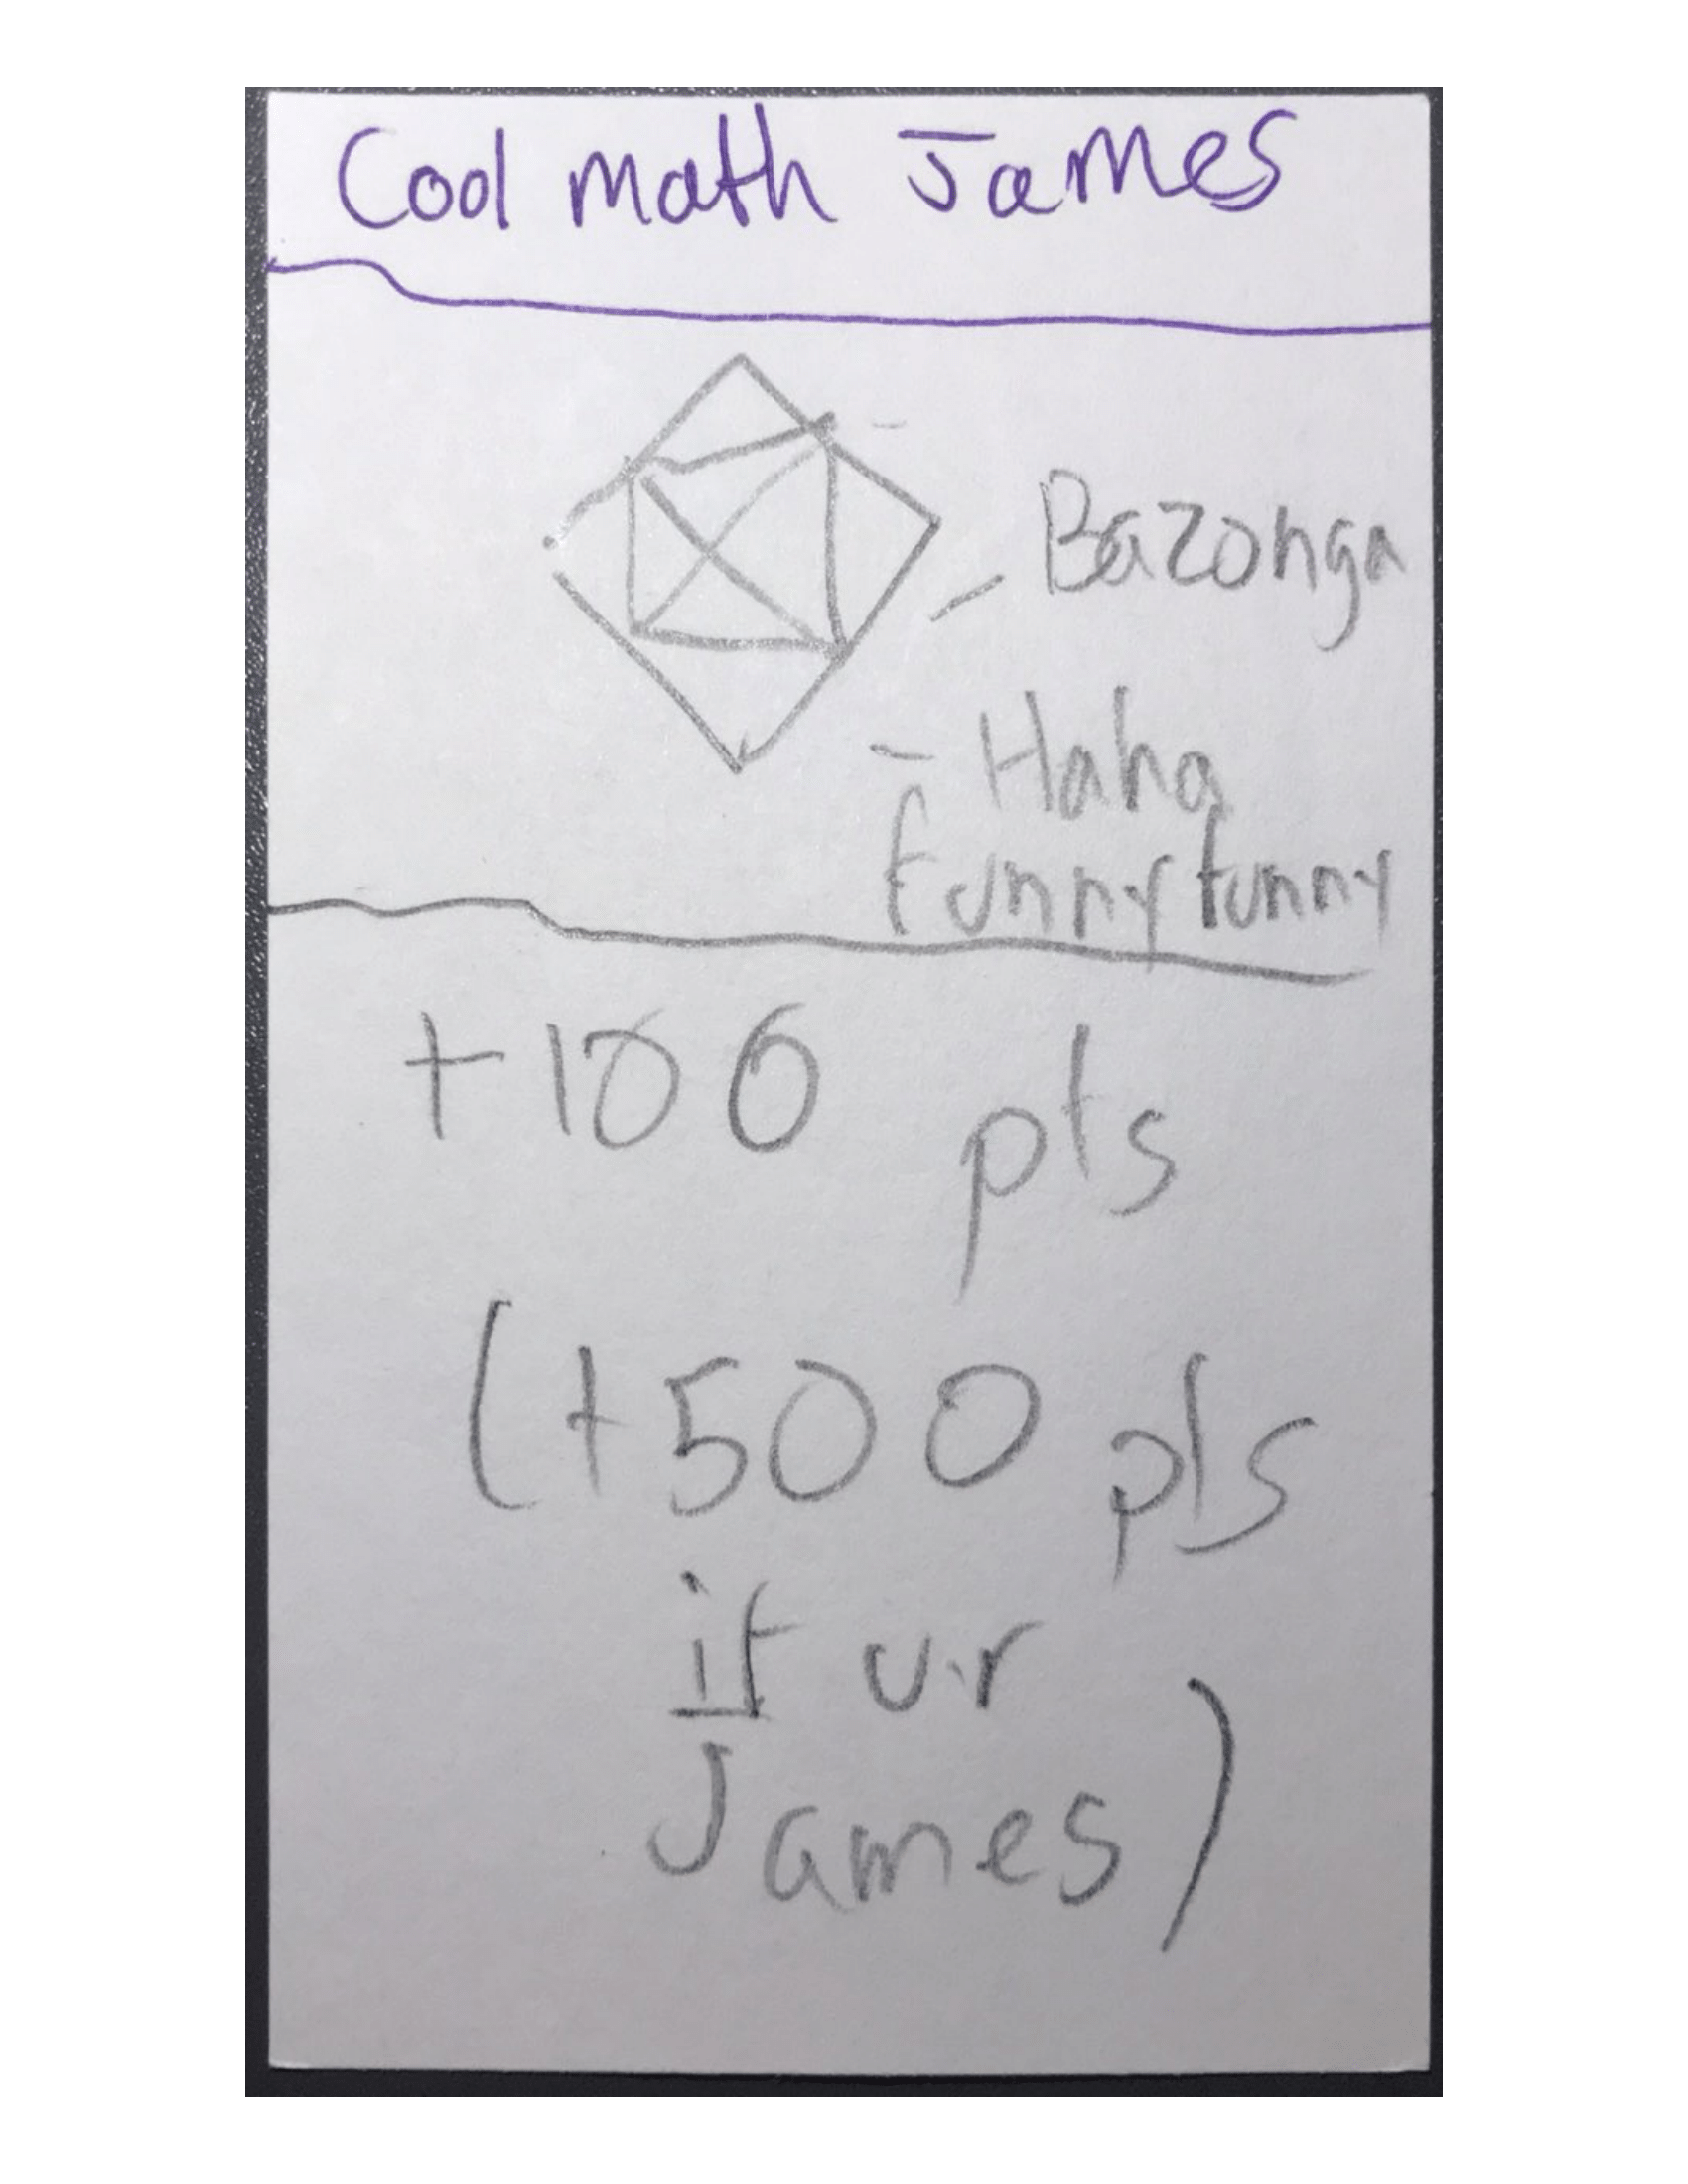 Cool math James
- Bazonga
- Haha
funny funny
+100 pts
(+500 pts
if u.r
James)